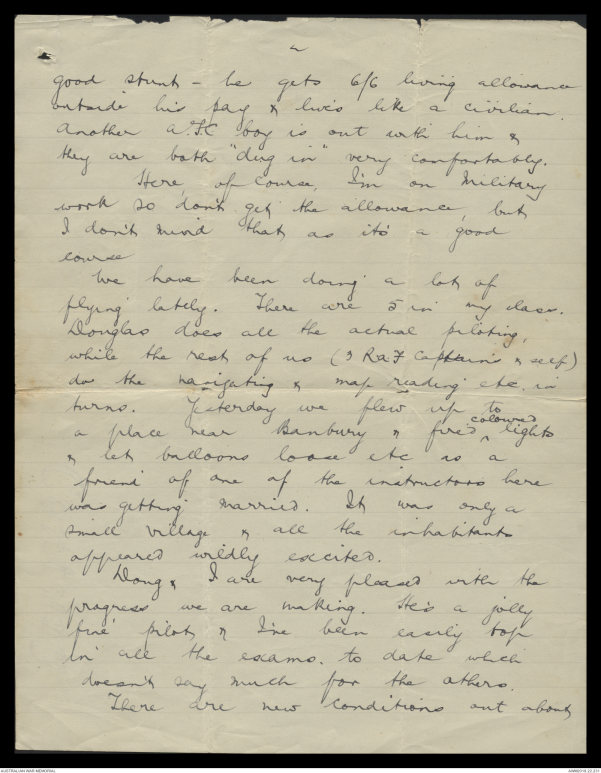 2
good stunt - he gets 6/6 living allowance
outside his pay & lives like a civilian.
Another A.F.C boy is out with him &
they are both "dug in" very comfortably.
Here, of course, I'm on Military
work so don't get the allowance, but
I don't mind that as it's a good
course
We have been doing a lot of
flying lately. There are 5 in my class.
Douglas does all the actual piloting,
while the rest of us (3 RAF Captains & self)
do the navigating & map reading etc. in
turns. Yesterday we flew up to
a place near Banbury & fired coloured lights
& let balloons loose etc as a
friend of one of the instructors here
was getting married. It was only a
small village & all the inhabitants
appeared wildly excited.
Doug & I are very pleased with the
progress we are making. He's a jolly
fine pilot & I've been easily top
in all the exams. to date which
doesn't say much for the others.
There are new conditions out about
AUSTRALIAN WAR MEMORIAL